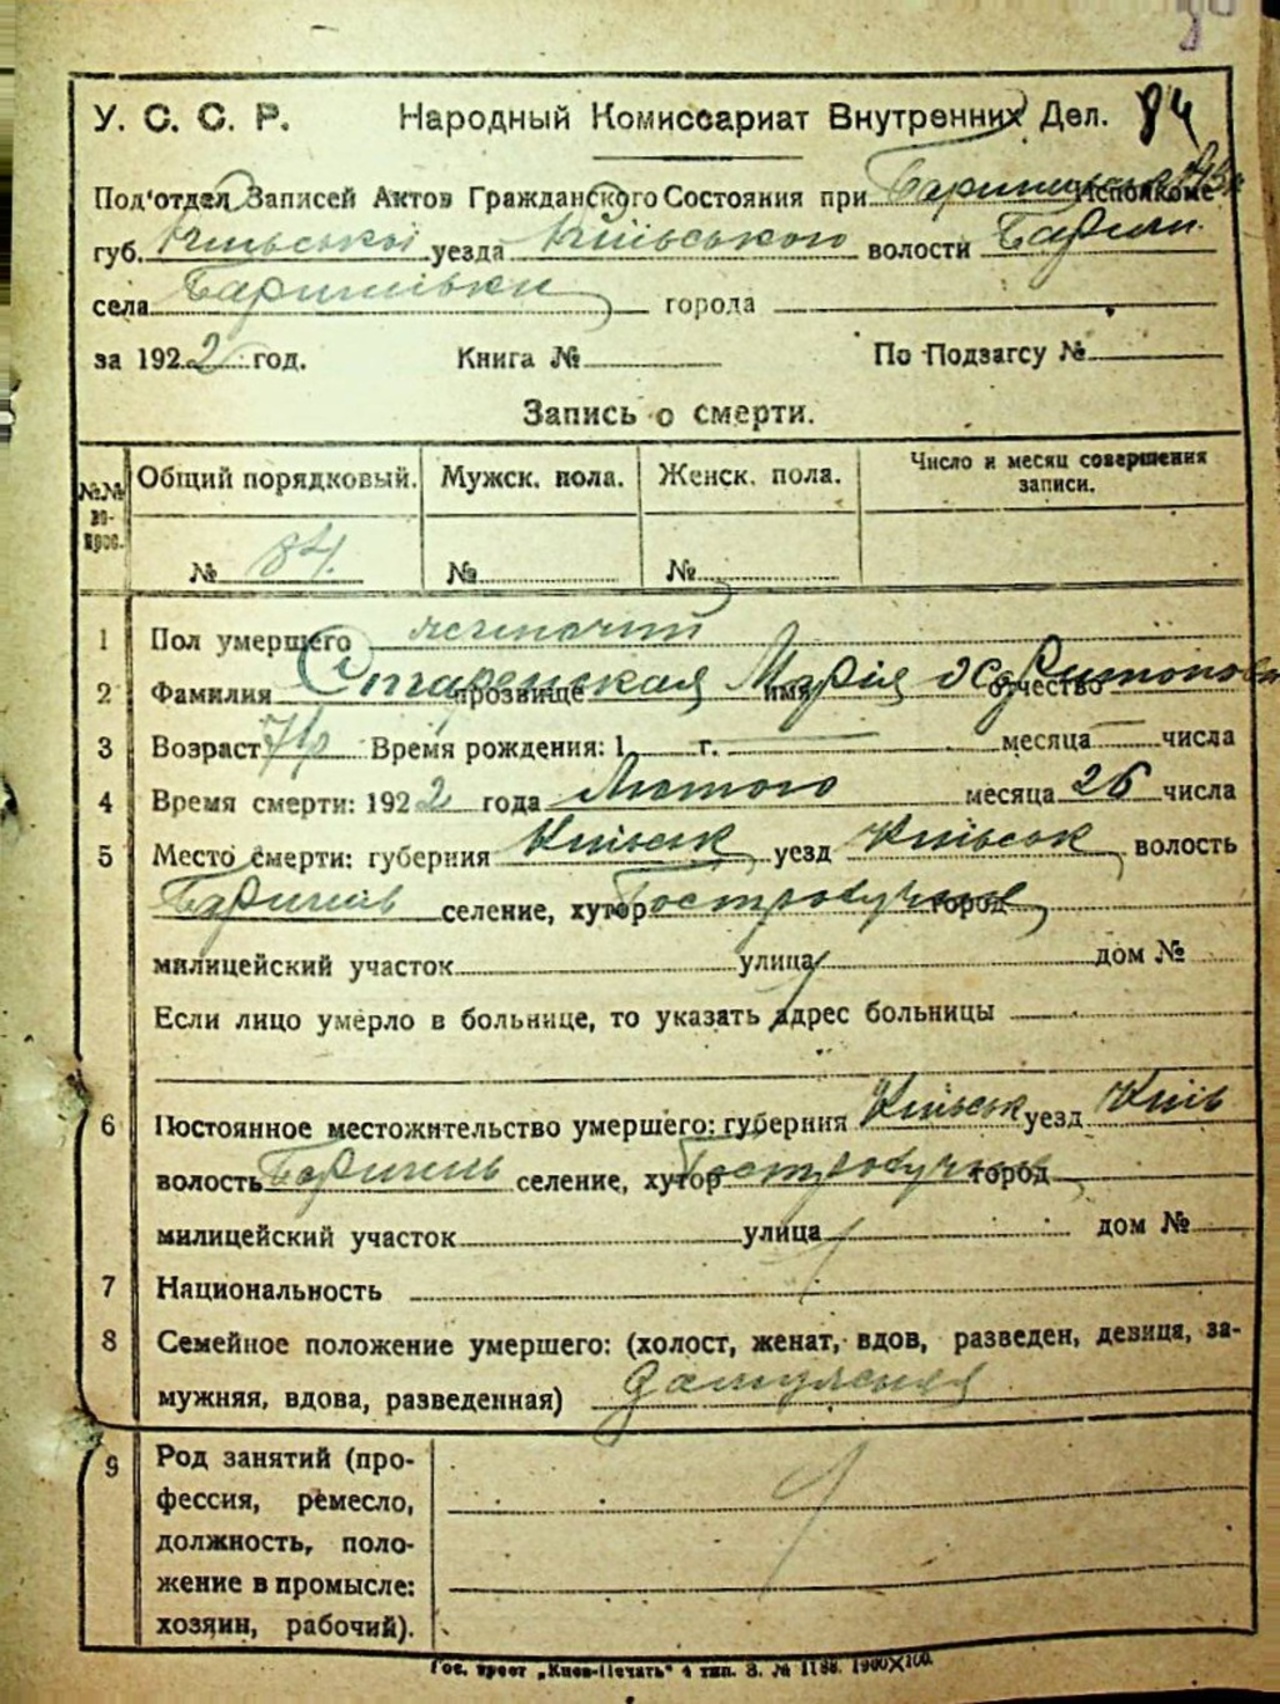 У. С. С. Р. Народный Комиссариат Внутренних Дел. 84
Под'отдел Записей Актов Гражданского Состояния при Исполкоме
губ. Київської уезда Київського волости Бариш.
села Баришівки города
за 1922 год. Книга № По Подзагсу №
Запись о смерти.
№№ во-прос. Общий порядковый. Мужск. пола. Женск. пола. Число и месяц совершения записи.
№ 84. № №
1 Пол умершего жіночий
2 Фамилия Старенская прозвище имя Марія отчество Харитонов
3 Возраст Время рождения: 1 г. месяца числа
4 Время смерти: 1922 года Лютого месяца 26 числа
5 Место смерти: губерния Київськ уезд Київськ волость
Баришів селение, хутор Гостролучче город
милицейский участок улица дом №
Если лицо умерло в больнице, то указать адрес больницы
6 Постоянное местожительство умершего: губерния Київськ уезд Київ
волость Баришів селение, хутор Гостролучче город
милицейский участок улица дом №
7 Национальность
8 Семейное положение умершего: (холост, женат, вдов, разведен, девица, за-
мужняя, вдова, разведенная) замужняя
9 Род занятий (про-
фессия, ремесло,
должность, поло-
жение в промысле:
хозяин, рабочий).
Гос. трест „Киев-Печать" 4 тип. З. № 1188. 1900×100.